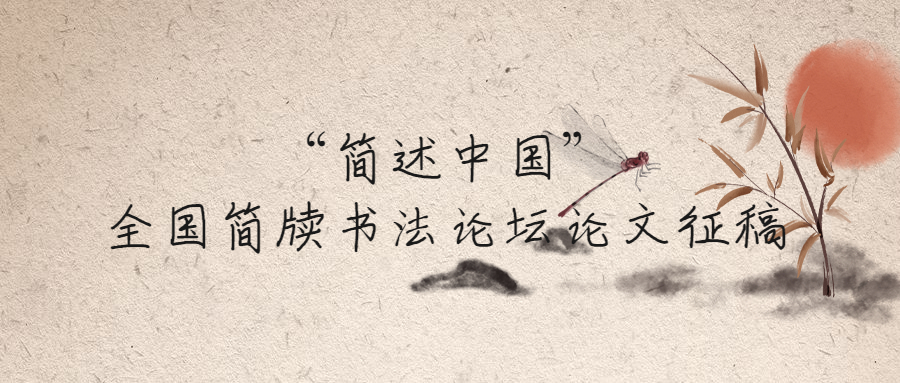 “简述中国”
全国简牍书法论坛论文征稿